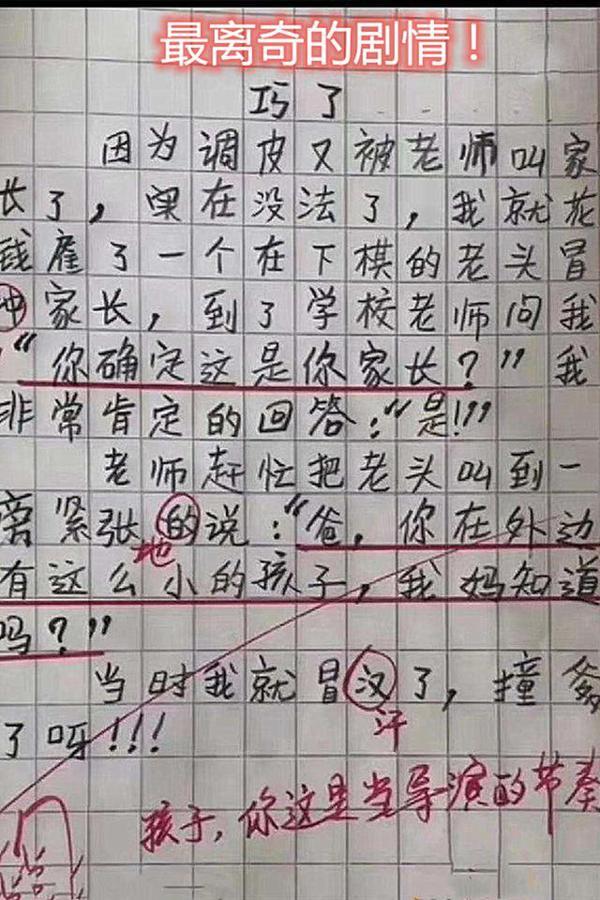 最离奇的剧情！
巧了
因为调皮又被老师叫家
长了，果在没法了，我就花
钱雇了一个在下棋的老头冒
冲家长，到了学校老师问我
“你确定这是你家长？”我
非常肯定的回答：“是！”
老师赶忙把老头叫到一
旁紧张的说：“爸，你在外边
地
有这么小的孩子，我妈知道
吗？”
当时我就冒汉了，撞爹
汗
了呀！！！
孩子，你这是当导演的节奏